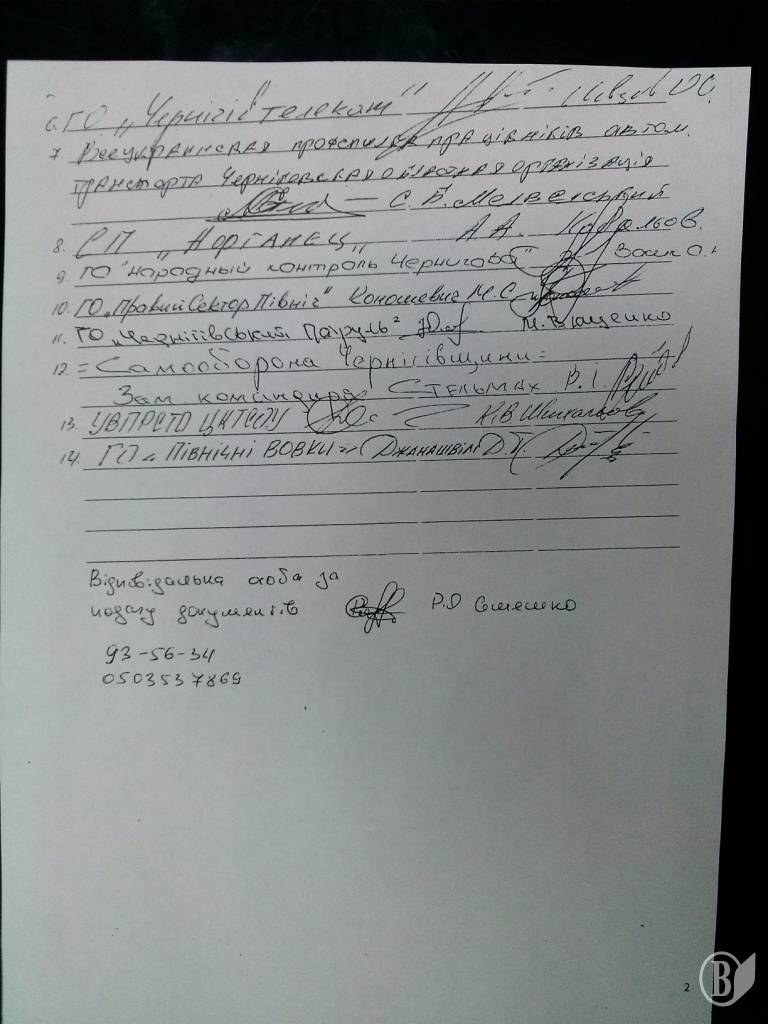 6. ГО „Чернігівтелеком"
7. Всеукраинская профспилка працівніків автом.
транспорта Черніговская обласная організація
С.Б.
8. СП „Норганец„ А.А.
9. ГО "Народный контроль Чернигова"
10. ГО „Правий Сектор Північ" Коношевич М.С.
11. ГО „Чернігівський Патруль" М. Ющенко
12. =Самооборона Чернігівщини=
Зам. командира Стельмах В.І.
13. К.В.
14. ГО „ ПІВНІЧНІ ВОВКИ" Джанашвілі Д.
Відповідальна особа за
подачу документів Р.О
93-56-34
0503537869
2
В